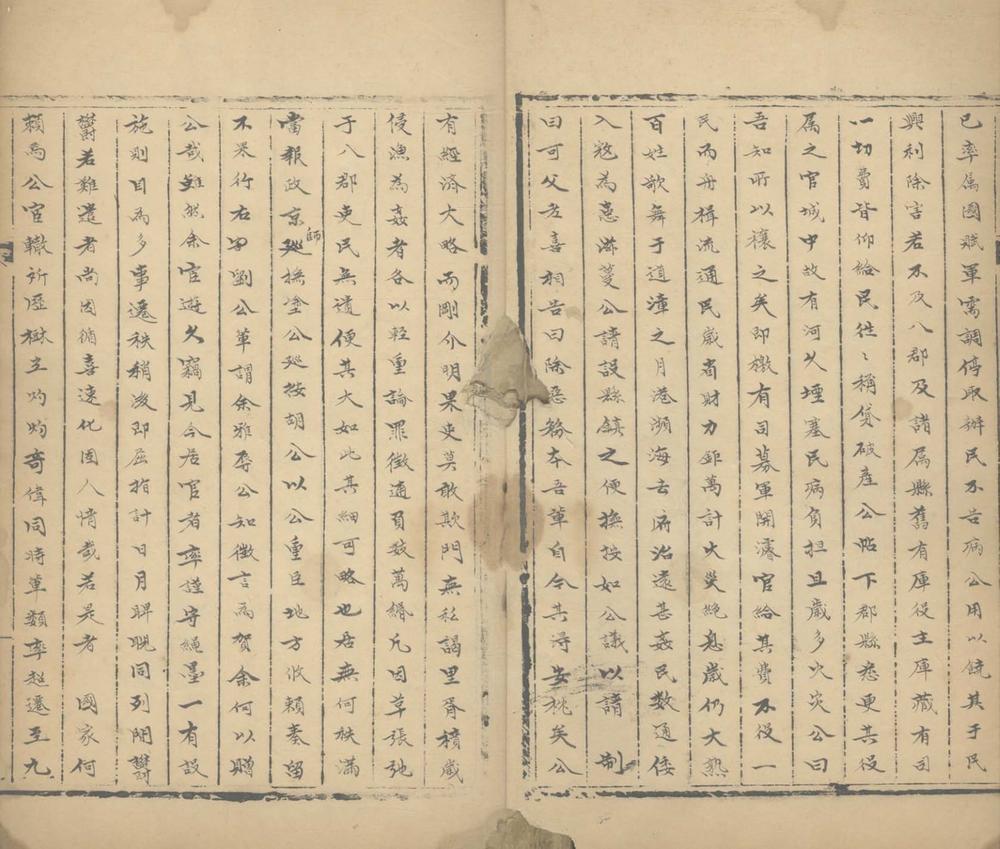 已率属國賦軍需調停取辦民不告病公用以饒其于民
興利除害若不及八郡及諸属縣舊有庫役主庫藏有司
一切費皆仰給民徃〻稱貸破產公帖下郡縣悉更其役
属之官城中故有河乆堙塞民病負担且歲多火灾公曰
吾知所以穰之矣即檄有司募軍開濬官給其費不役一
民而舟楫流通民歲省財力鉅萬計火災絕息歲仍大熟
百姓歌舞于道漳之月港瀕海去府治遠甚姦民数通倭
入冦為患滋蔓公請設縣鎮之便撫按如公議以請 制
曰可父老喜相告曰除惡務本吾軰自今其得安枕矣公
有經濟大略而剛介明果吏莫敢欺門無私謁里胥積歲
侵漁為姦者各以輕重論罪徵逋負数萬緡凡因革張弛
于八郡吏民無遺便其大如此其細可略也居無何秩滿
當報政京師廵撫塗公廵按胡公以公重臣地方攸賴奏留
不果行右劉公軰謂余雅辱公知徴言為賀余何以贈
公哉雖然余宦遊久竊見今居官者率謹守繩墨一有設
施則目為多事遷秩稍後即屈指計日月睥睨同列閒欝
欝若難遣者尚因循喜速化固人情哉若是者 國家何
頼焉公宦轍所歷樹立灼灼奇偉同時軰類率超遷至九